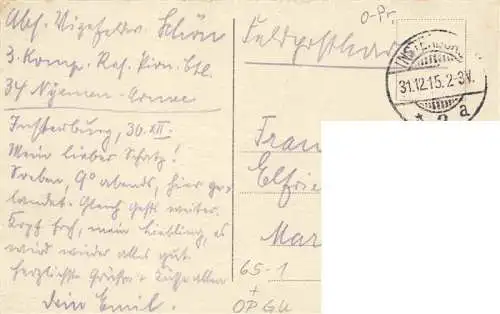 Abs. Vizefeldw. Schön
3. Komp. Res. Pion. Btl.
34 Njemen-Armee
Insterburg, 30.XII.
Mein lieber Schatz!
Soeben, 9° abends, hier ge-
landet. Gleich gehts weiter.
Kopf hoch, mein Liebling, es
wird wieder alles gut.
herzlichste Grüße + Küsse allen
dein Emil.
Feldpostkarte
O-Pr.
INSTERBURG
31.12.15. 2-3V.
* 2 a
Frau
Elfrie
Mar
65-1
+
OP GU